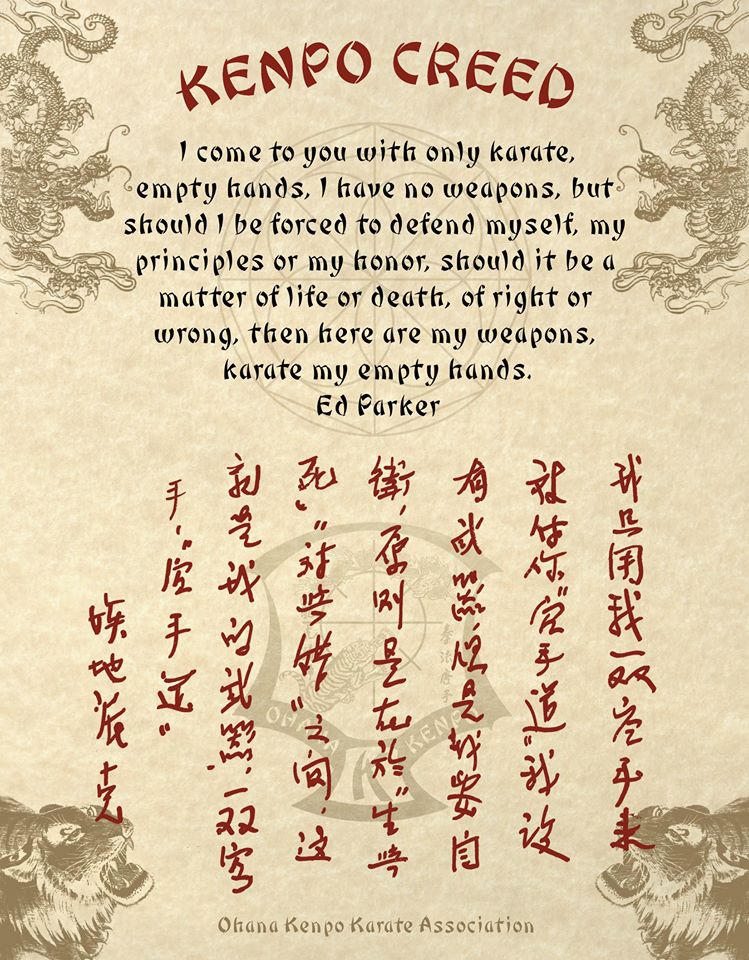 KENPO CREED
I come to you with only karate,
empty hands, I have no weapons, but
should I be forced to defend myself, my
principles or my honor, should it be a
matter of life or death, of right or
wrong, then here are my weapons,
karate my empty hands.
Ed Parker
我只用我一双空手来
你"空手道"我没
有武器,但是我要自
衛,原则是在於"生與
死","对與错"之间,这
就是我的武器,一双空
手,"空手道"
埃地派克
OHANA KENPO
K
Ohana Kenpo Karate Association